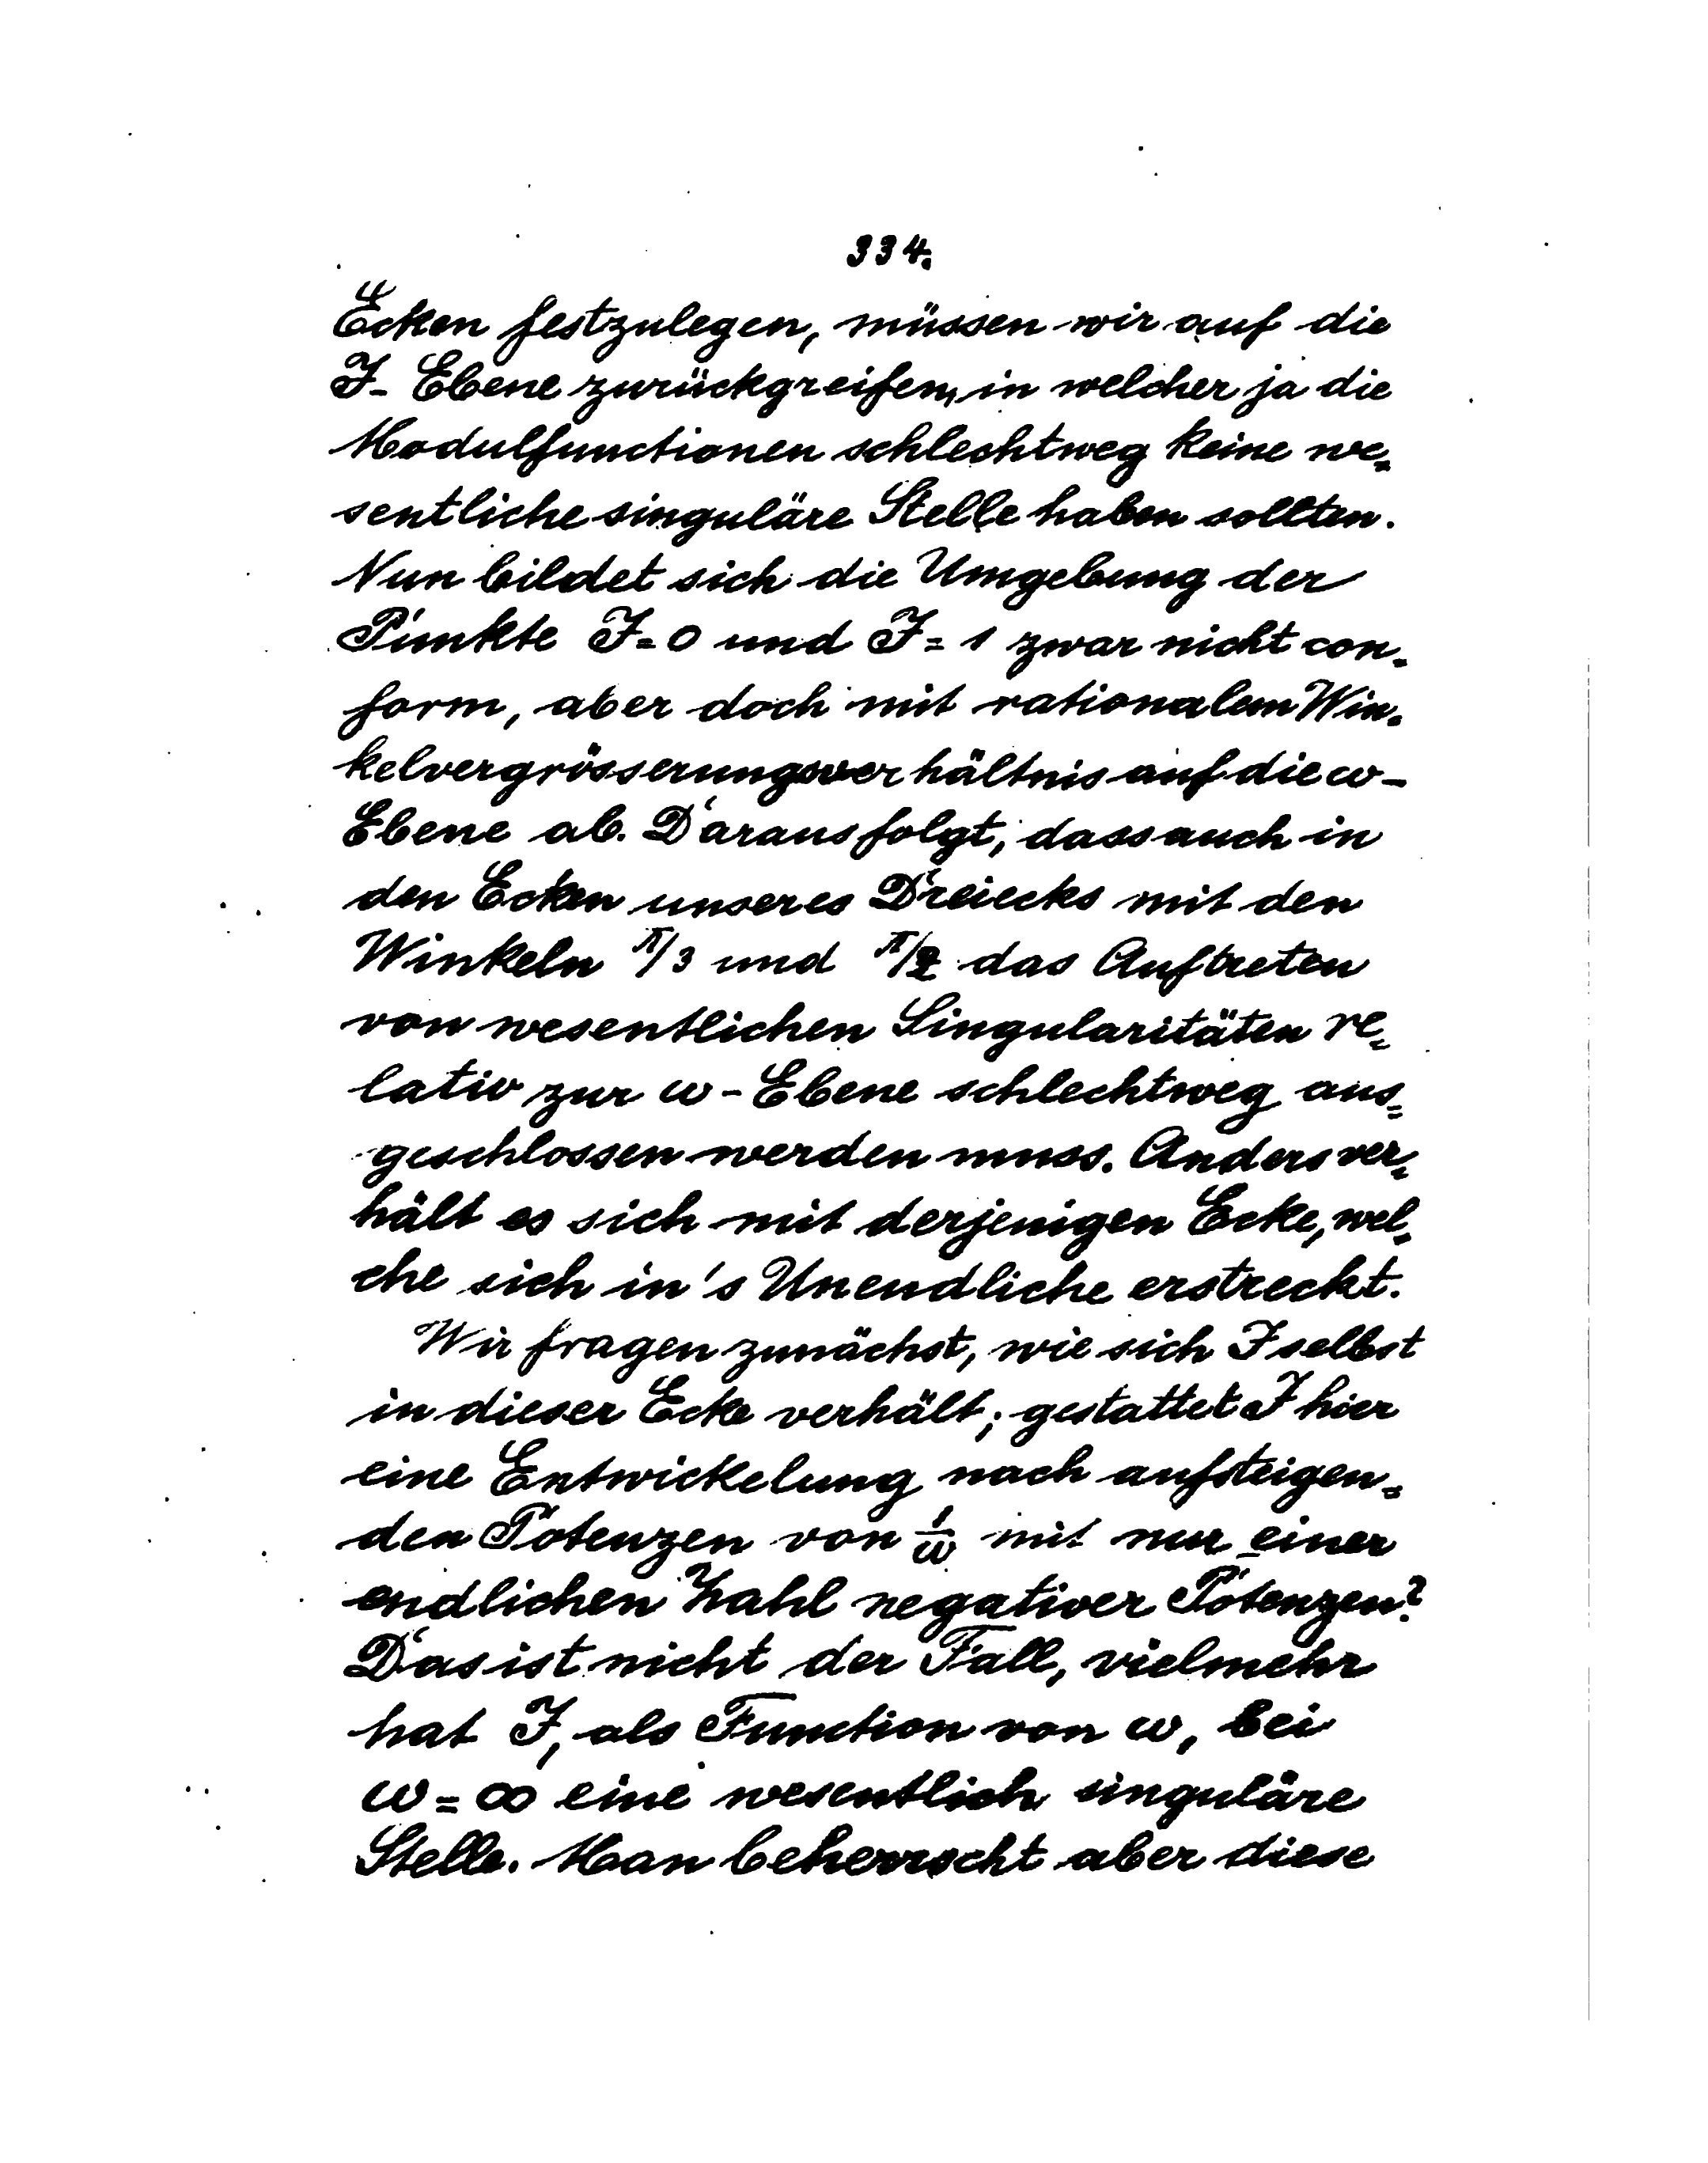 334.
Ecken festzulegen, müssen wir auf die
J- Ebene zurückgreifen, in welcher ja die
Modulfunctionen schlechtweg keine we=
sentliche singuläre Stelle haben sollten.
Nun bildet sich die Umgebung der
Punkte J=0 und J=1 zwar nicht con=
form, aber doch mit rationalem Win=
kelvergrösserungsverhältnis auf die ω-
Ebene ab. Daraus folgt, dass auch in
den Ecken unseres Dreiecks mit den
Winkeln π/3 und π/2 das Auftreten
von wesentlichen Singularitäten re=
lativ zur ω-Ebene schlechtweg aus=
geschlossen werden muss. Anders ver=
hält es sich mit derjenigen Ecke, wel=
che sich in's Unendliche erstreckt.
Wir fragen zunächst, wie sich J selbst
in dieser Ecke verhält; gestattet J hier
eine Entwickelung nach aufsteigen=
den Potenzen von 1/ω mit nur einer
endlichen Zahl negativer Potenzen?
Das ist nicht der Fall, vielmehr
hat J, als Function von ω, bei
ω=∞ eine wesentlich singuläre
Stelle. Man beherrscht aber diese